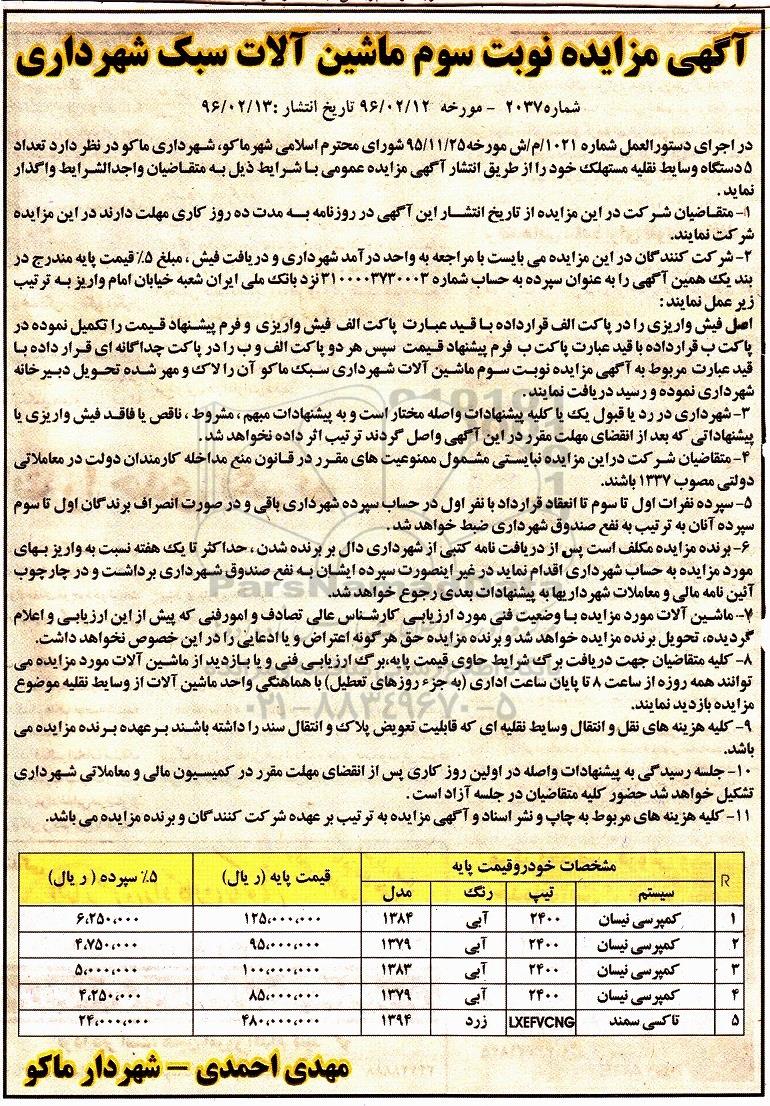 آگهی مزایده نوبت سوم ماشین آلات سبک شهرداری
شماره ۲۰۳۷ - مورخه ۹۶/۰۲/۱۲ تاریخ انتشار :۹۶/۰۲/۱۳
در اجرای دستورالعمل شماره ۱۰۲۱/م/ش مورخه ۹۵/۱۱/۲۵ شورای محترم اسلامی شهر ماکو، شهرداری ماکو در نظر دارد تعداد
۵ دستگاه وسایط نقلیه مستهلک خود را از طریق انتشار آگهی مزایده عمومی با شرایط ذیل به متقاضیان واجدالشرایط واگذار
نماید.
۱- متقاضیان شرکت در این مزایده از تاریخ انتشار این آگهی در روزنامه به مدت ده روز کاری مهلت دارند در این مزایده
شرکت نمایند.
۲- شرکت کنندگان در این مزایده می بایست با مراجعه به واحد درآمد شهرداری و دریافت فیش ، مبلغ ۵٪ قیمت پایه مندرج در
بند یک همین آگهی را به عنوان سپرده به حساب شماره ۳۱۰۰۰۰۳۷۳۰۰۰۳ نزد بانک ملی ایران شعبه خیابان امام واریز به ترتیب
زیر عمل نمایند :
اصل فیش واریزی را در پاکت الف قرارداده با قید عبارت پاکت الف فیش واریزی و فرم پیشنهاد قیمت را تکمیل نموده در
پاکت ب قرارداده با قید عبارت پاکت ب فرم پیشنهاد قیمت سپس هر دو پاکت الف و ب را در پاکت چداگانه ای قرار داده با
قید عبارت مربوط به آگهی مزایده نوبت سوم ماشین آلات شهرداری سبک ماکو آن را لاک و مهر شده تحویل دبیرخانه
شهرداری نموده و رسید دریافت نمایند .
۳- شهرداری در رد یا قبول یک یا کلیه پیشنهادات واصله مختار است و به پیشنهادات مبهم ، مشروط ، ناقص یا فاقد فیش واریزی یا
پیشنهاداتی که بعد از انقضای مهلت مقرر در این آگهی واصل گردند ترتیب اثر داده نخواهد شد .
۴- متقاضیان شرکت دراین مزایده نبایستی مشمول ممنوعیت های مقرر در قانون منع مداخله کارمندان دولت در معاملاتی
دولتی مصوب ۱۳۳۷ باشند.
۵- سپرده نفرات اول تا سوم تا انعقاد قرارداد با نفر اول در حساب سپرده شهرداری باقی و در صورت انصراف برندگان اول تا سوم
سپرده آنان به ترتیب به نفع صندوق شهرداری ضبط خواهد شد .
۶- برنده مزایده مکلف است پس از دریافت نامه کتبی از شهرداری دال بر برنده شدن ، حداکثر تا یک هفته نسبت به واریز بهای
مورد مزایده به حساب شهرداری اقدام نماید در غیر اینصورت سپرده ایشان به نفع صندوق شهرداری برداشت و در چارچوب
آئین نامه مالی و معاملات شهرداریها به پیشنهادات بعدی رجوع خواهد شد.
۷- ماشین آلات مورد مزایده با وضعیت فنی مورد ارزیابی کارشناس عالی تصادف و امورفنی که پیش از این ارزیابی و اعلام
گردیده، تحویل برنده مزایده خواهد شد و برنده مزایده حق هر گونه اعتراض و یا ادعایی را در این خصوص نخواهد داشت.
۸- کلیه متقاضیان جهت دریافت برگ شرایط حاوی قیمت پایه،برگ ارزیابی فنی و یا بازدید از ماشین آلات مورد مزایده می
توانند همه روزه از ساعت ۸ تا پایان ساعت اداری (به جزء روزهای تعطیل) با هماهنگی واحد ماشین آلات از وسایط نقلیه موضوع
مزایده بازدید نمایند.
۹- کلیه هزینه های نقل و انتقال وسایط نقلیه ای که قابلیت تعویض پلاک و انتقال سند را داشته باشند بر عهده برنده مزایده می
باشد.
۱۰- جلسه رسیدگی به پیشنهادات واصله در اولین روز کاری پس از انقضای مهلت مقرر در کمیسیون مالی و معاملاتی شهرداری
تشکیل خواهد شد حضور کلیه متقاضیان در جلسه آزاد است .
۱۱- کلیه هزینه های مربوط به چاپ و نشر اسناد و آگهی مزایده به ترتیب بر عهده شرکت کنندگان و برنده مزایده می باشد.
R مشخصات خودروقیمت پایه قیمت پایه (ر یال) ۵٪ سپرده ( ر یال)
سیستم تیپ رنگ مدل
۱ کمپرسی نیسان ۲۴۰۰ آبی ۱۳۸۴ ۱۲۵,۰۰۰,۰۰۰ ۶,۲۵۰,۰۰۰
۲ کمپرسی نیسان ۲۴۰۰ آبی ۱۳۷۹ ۹۵,۰۰۰,۰۰۰ ۴,۷۵۰,۰۰۰
۳ کمپرسی نیسان ۲۴۰۰ آبی ۱۳۸۳ ۱۰۰,۰۰۰,۰۰۰ ۵,۰۰۰,۰۰۰
۴ کمپرسی نیسان ۲۴۰۰ آبی ۱۳۷۹ ۸۵,۰۰۰,۰۰۰ ۴,۲۵۰,۰۰۰
۵ تاکسی سمند LXEFVCNG زرد ۱۳۹۴ ۴۸۰,۰۰۰,۰۰۰ ۲۴,۰۰۰,۰۰۰
مهدی احمدی – شهردار ماکو
ParsNamadData
۰۲۱-۸۸۳۴۹۶۷۰-۵